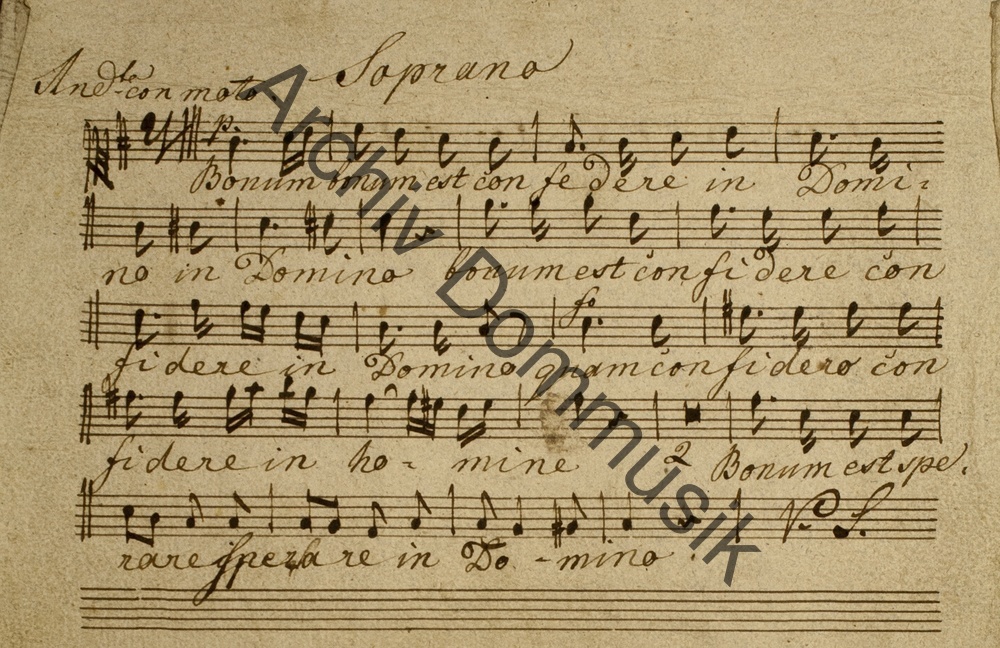 Soprano
And.te con moto.
p.
Bonum bonum est con federe in Domi-
no in Domino bonum est confidere con
fo
fidere in Domino quam confidere con
fidere in ho - mine 2 Bonum est spe.
rare sperare in Do - mino. V. S.
Archiv Dommusik